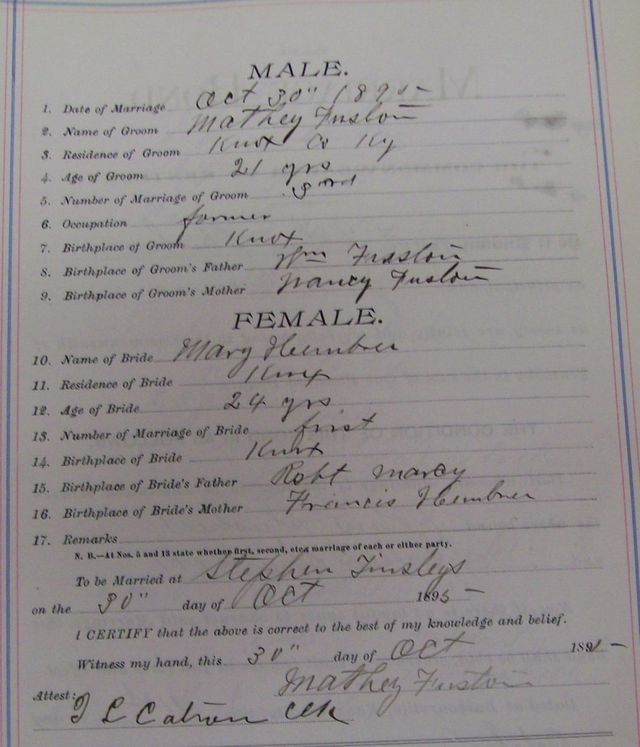 MALE.
1. Date of Marriage Oct 30" 1895
2. Name of Groom Mathey Fuston
3. Residence of Groom Knox Co Ky
4. Age of Groom 21 yrs
5. Number of Marriage of Groom 3rd
6. Occupation farmer
7. Birthplace of Groom Knox
8. Birthplace of Groom's Father Wm Fuston
9. Birthplace of Groom's Mother Nancy Fuston
FEMALE.
10. Name of Bride Mary Hembree
11. Residence of Bride Knox
12. Age of Bride 24 yrs
13. Number of Marriage of Bride first
14. Birthplace of Bride Knox
15. Birthplace of Bride's Father Robt Marcy
16. Birthplace of Bride's Mother Francis Hembree
17. Remarks
N. B.—At Nos. 5 and 13 state whether first, second, etc., marriage of each or either party.
To be Married at Stephen Tinsleys
on the 30" day of Oct 1895
I CERTIFY that the above is correct to the best of my knowledge and belief.
Witness my hand, this 30" day of Oct 189
Mathey Fuston
Attest: J L Catron Clk